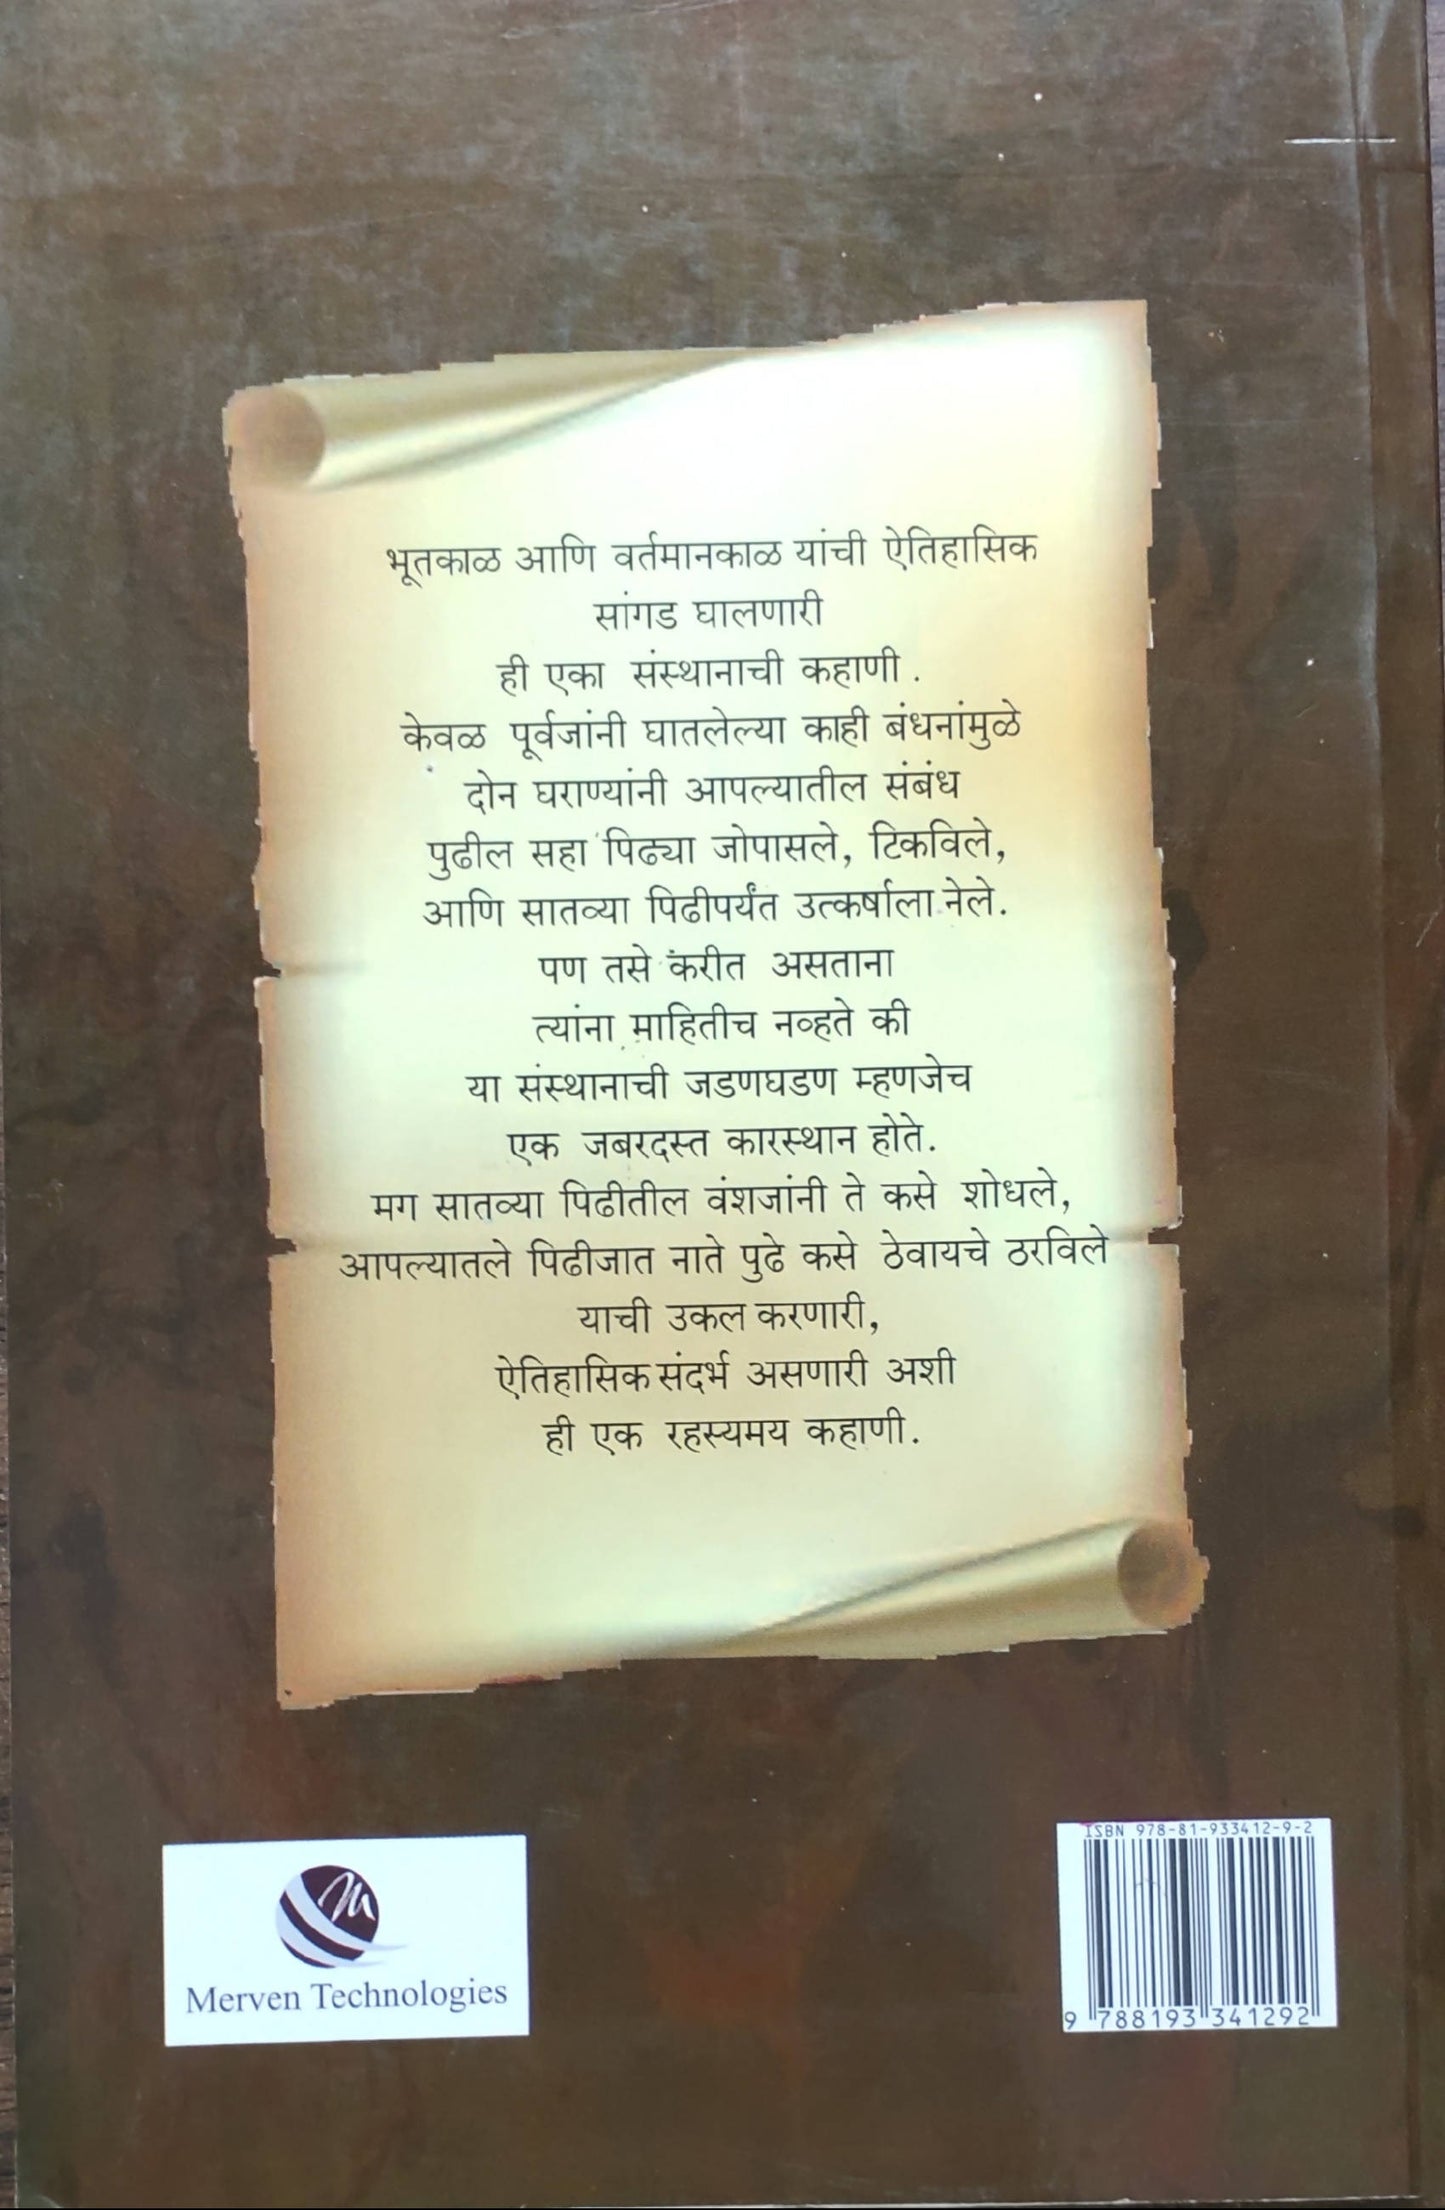 भूतकाळ आणि वर्तमानकाळ यांची ऐतिहासिक
सांगड घालणारी
ही एका संस्थानाची कहाणी.
केवळ पूर्वजांनी घातलेल्या काही बंधनांमुळे
दोन घराण्यांनी आपल्यातील संबंध
पुढील सहा पिढ्या जोपासले, टिकविले,
आणि सातव्या पिढीपर्यंत उत्कर्षाला नेले.
पण तसे करीत असताना
त्यांना माहितीच नव्हते की
या संस्थानाची जडणघडण म्हणजेच
एक जबरदस्त कारस्थान होते.
मग सातव्या पिढीतील वंशजांनी ते कसे शोधले,
आपल्यातले पिढीजात नाते पुढे कसे ठेवायचे ठरविले
याची उकल करणारी,
ऐतिहासिक संदर्भ असणारी अशी
ही एक रहस्यमय कहाणी.
M
Merven Technologies
ISBN 978-81-933412-9-2
9 788193 341292